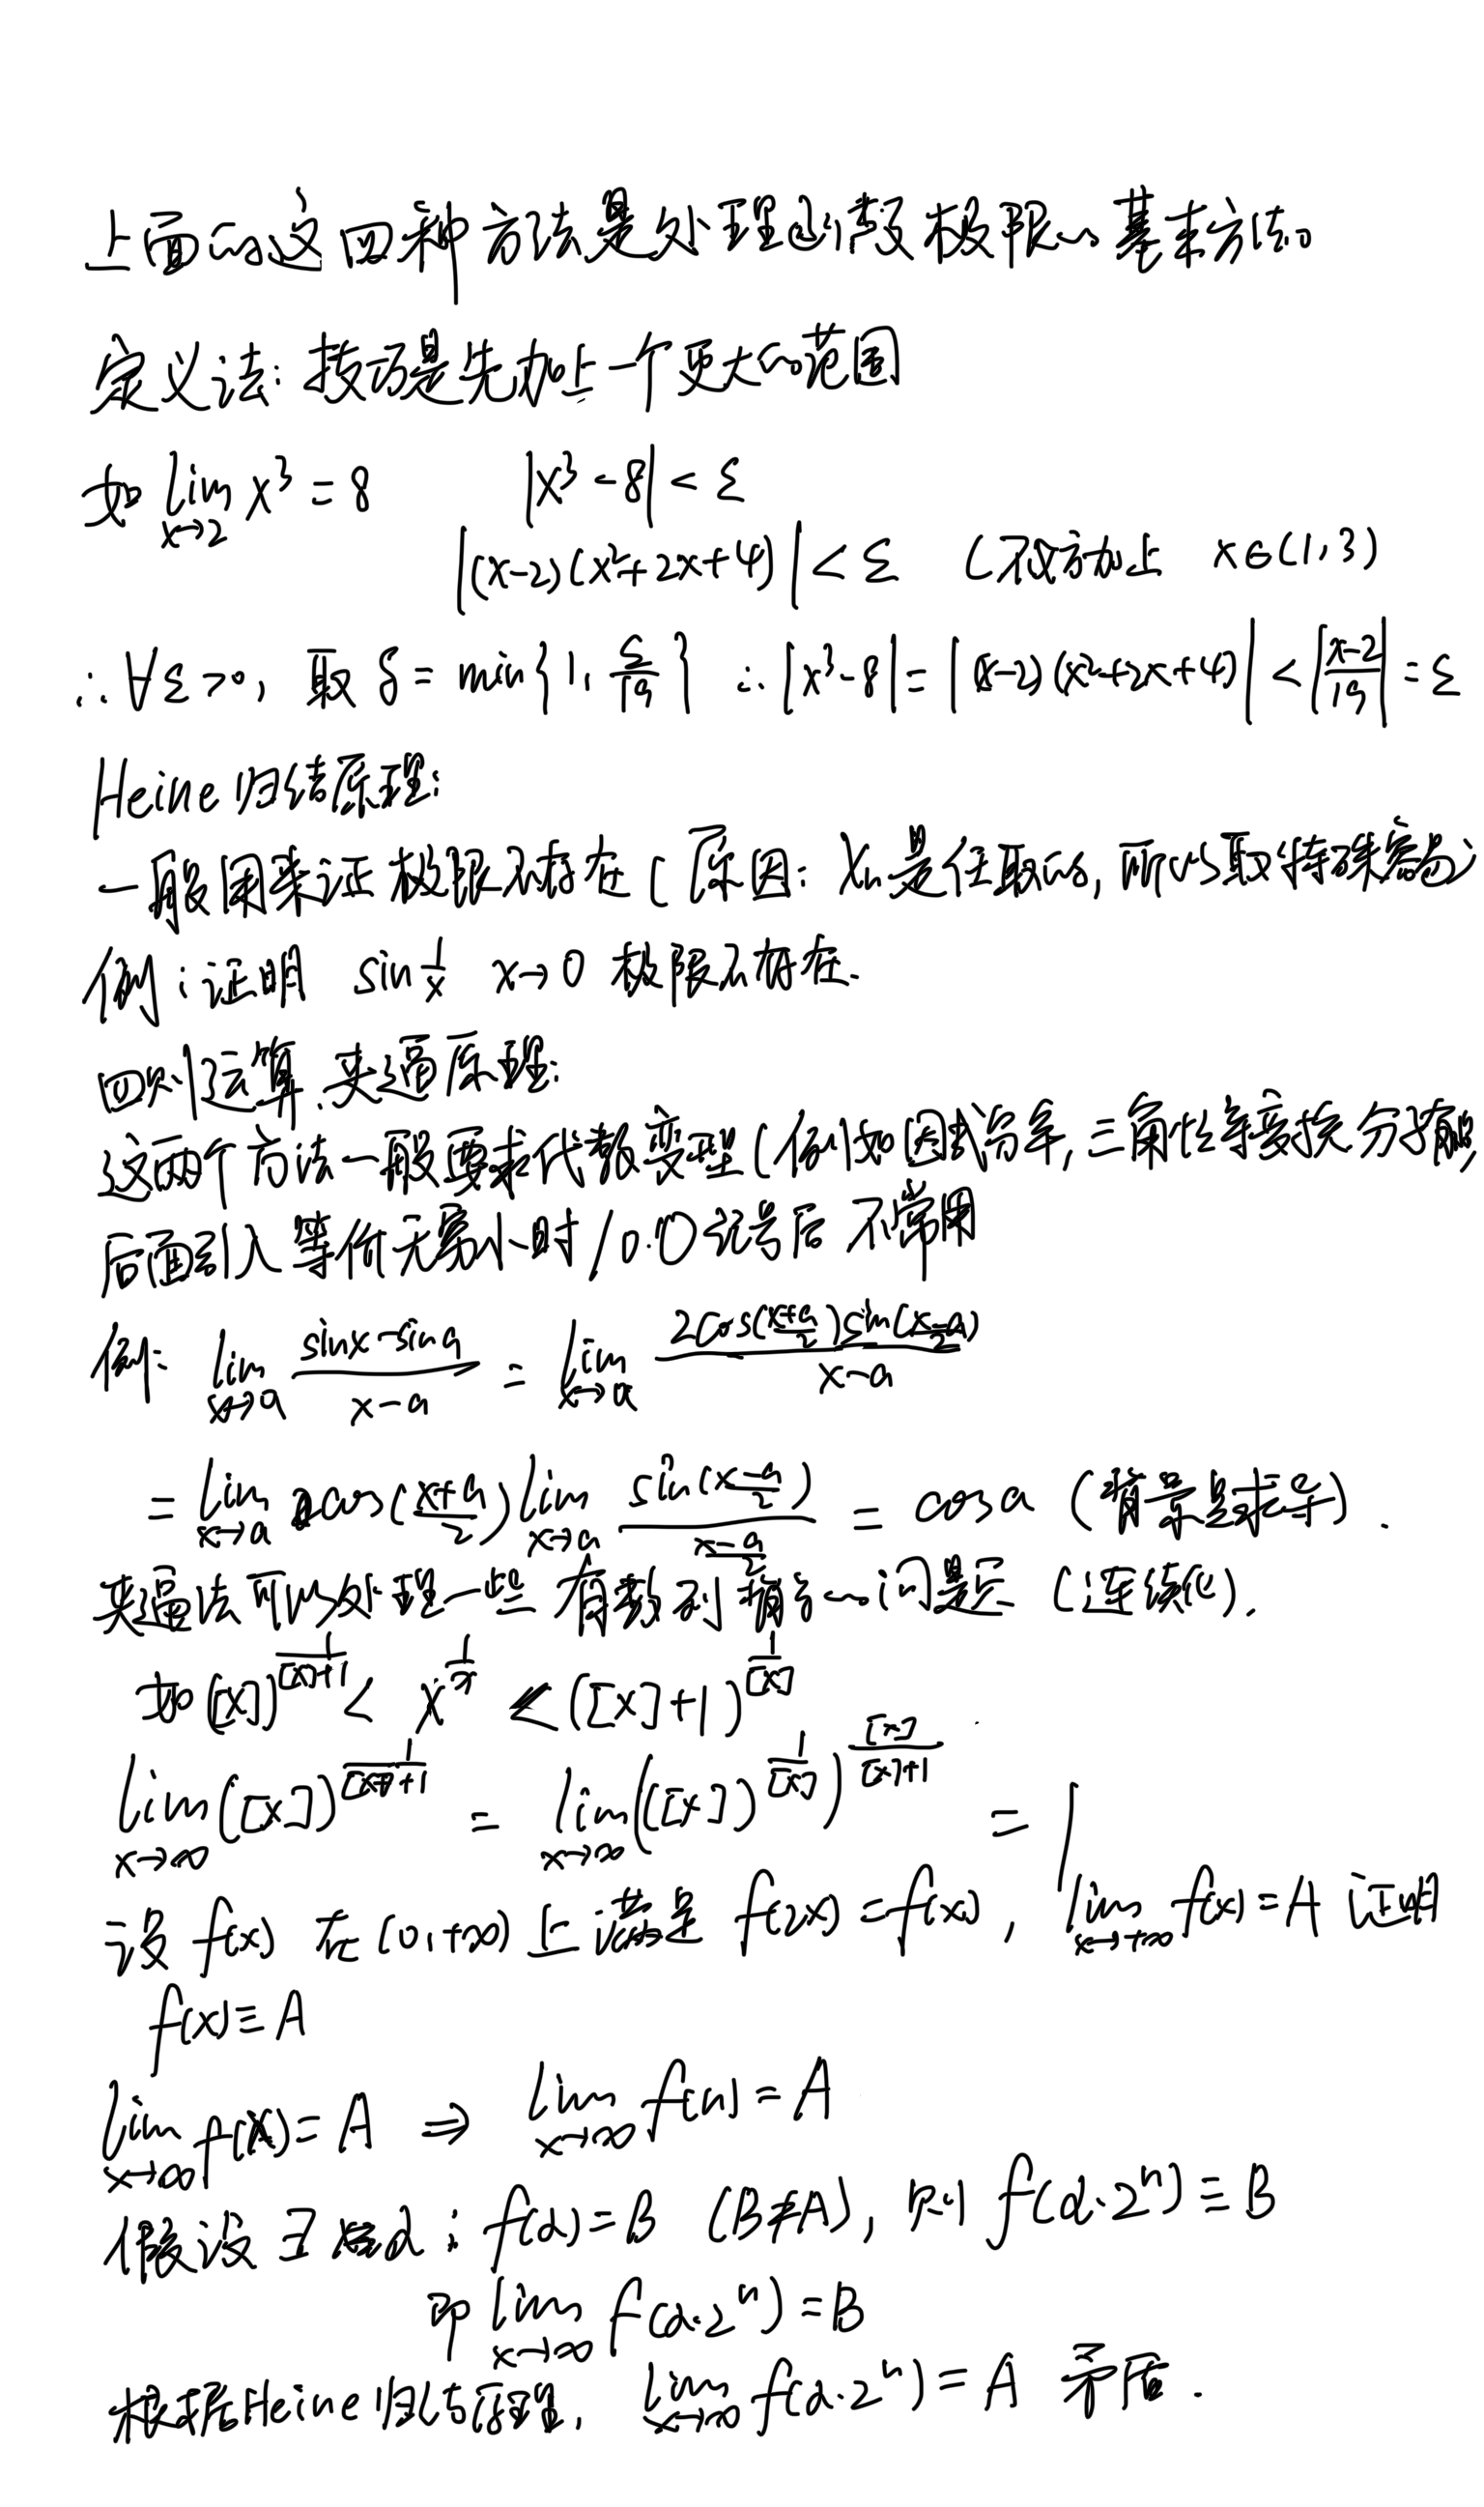 上面的这四种方法是处理函数极限的基本方法。
定义法: 技巧是先加上一个更大的范围
如 lim x³ = 8 |x³ - 8| < ε
x→2
|(x-2)(x²+2x+4)| < ε (不妨加上 x∈(1,3)
∴ ∀ε>0, 取 δ = min{1, ε/19} ∴ |x³-8| = |(x-2)(x²+2x+4)| < |x-2/19| = ε
Heine归结原理:
一般用来证极限不存在 (原因: xn是任取的, 所以取特殊容易)
例: 证明 sin 1/x x→0 极限不存在.
四则运算.夹逼原理:
这两个方法一般要求代数变型 (例如因式分解, 三角恒等变换, 分子有理化)
后面引入等价无穷小时/O.o记号后不常用
例: lim (sinx-sina)/(x-a) = lim 2cos((x+a)/2)sin((x-a)/2)/(x-a)
x→a x→a
= lim cos((x+a)/2) lim sin((x-a)/2)/((x-a)/2) = cos a
x→a x→a
夹逼法可以处理一些 有数列 的问题 (连续化).
如 ([x])^(1/([x]+1)) < x^(1/x) < ([x]+1)^(1/[x])
lim ([x])^(1/([x]+1)) = lim (([x])^(1/[x]))^([x]/([x]+1)) = 1
x→∞ x→∞
设 f(x) 在 (0,+∞) 上满足 f(2x) = f(x), lim f(x) = A 证明
x→+∞
f(x) ≡ A
lim f(x) = A ⇒ lim f(n) = A
x→∞ x→∞
假设 ∃ α: f(α) = B (B≠A), 则 f(α·2ⁿ) = B
即 lim f(α·2ⁿ) = B
x→∞
根据Heine归结原理, lim f(α·2ⁿ) = A 矛盾.
x→∞